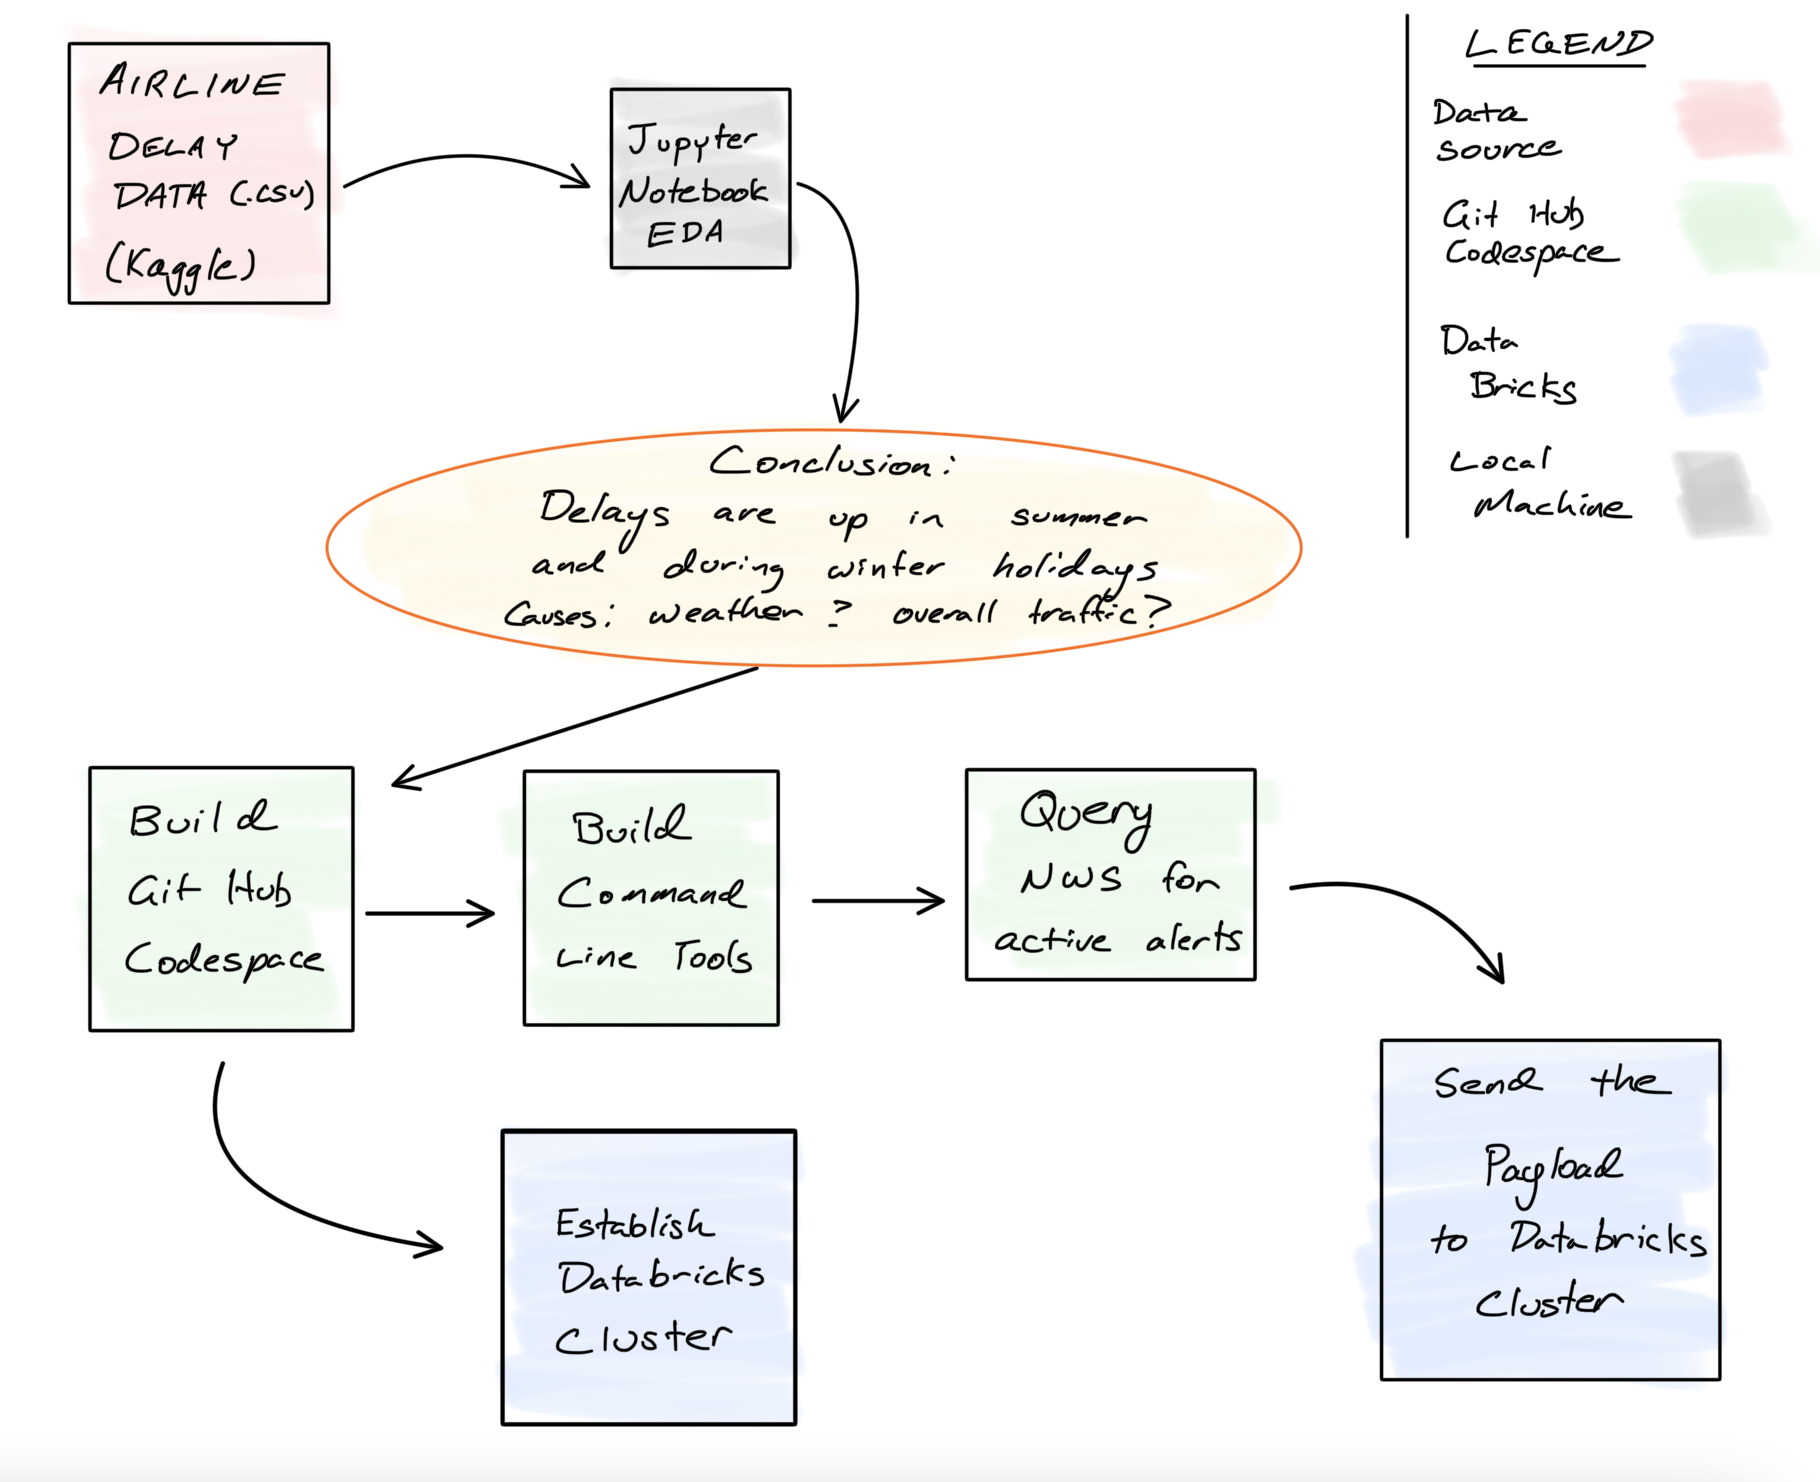 AIRLINE
DELAY
DATA (.csv)
(Kaggle)
Jupyter
Notebook
EDA
LEGEND
Data
source
Git Hub
Codespace
Data
Bricks
Local
Machine
Conclusion:
Delays are up in summer
and during winter holidays
Causes: weather? overall traffic?
Build
Git Hub
Codespace
Build
Command
Line Tools
Query
NWS for
active alerts
Establish
Databricks
Cluster
Send the
Payload
to Databricks
Cluster